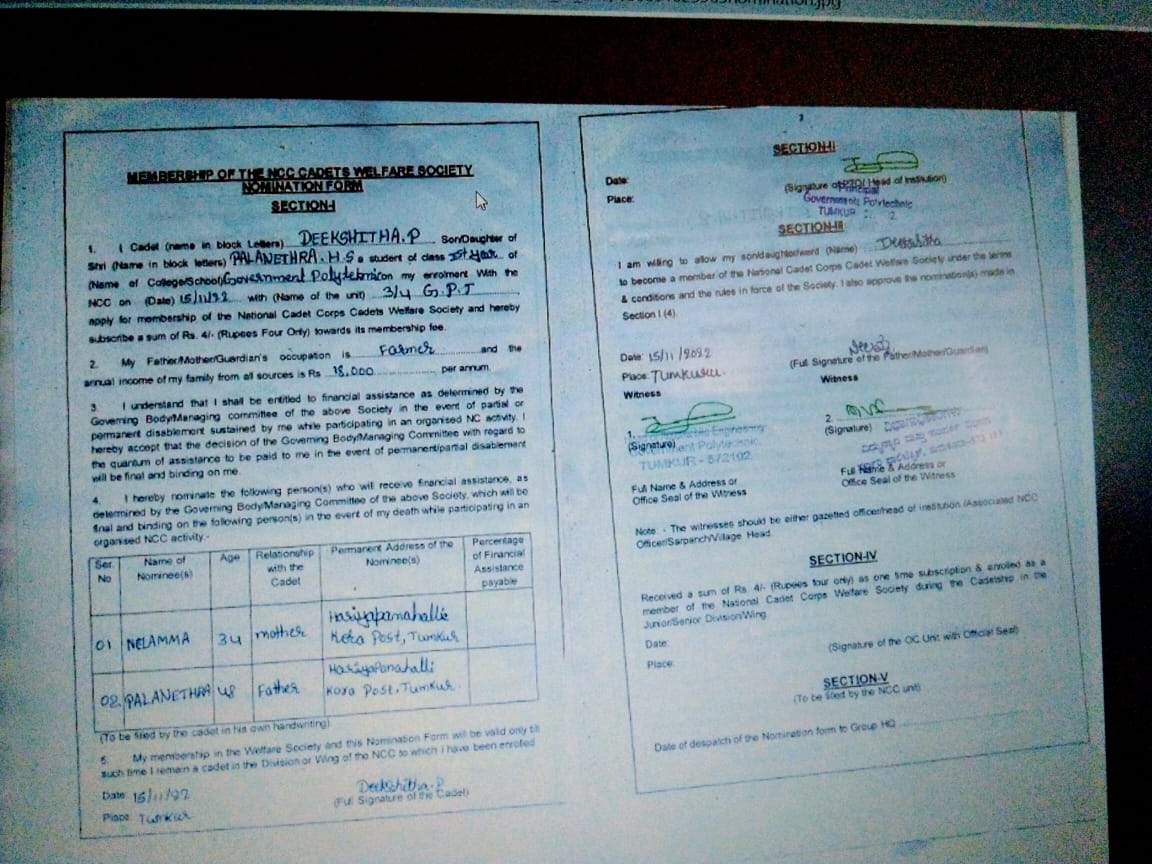 nomination.jpg
MEMBERSHIP OF THE NCC CADETS WELFARE SOCIETY
NOMINATION FORM
SECTION-I
1. I Cadet (name in block Letters) DEEKSHITHA.P Son/Daughter of
Shri (Name in block letters) PALANETHRA.H.S a student of class Ist year of
(Name of College/School) Government Polytechnic on my enrolment With the
NCC on (Date) 15/11/22 with (Name of the unit) 3/4 G.P.T
apply for membership of the National Cadet Corps Cadets Welfare Society and hereby
subscribe a sum of Rs. 4/- (Rupees Four Only) towards its membership fee.
2. My Father/Mother/Guardian's occupation is Farmer and the
annual income of my family from all sources is Rs 18,000 per annum.
3. I understand that I shall be entitled to financial assistance as determined by the
Governing Body/Managing committee of the above Society in the event of partial or
permanent disablement sustained by me while participating in an organised NC activity. I
hereby accept that the decision of the Governing Body/Managing Committee with regard to
the quantum of assistance to be paid to me in the event of permanent/partial disablement
will be final and binding on me.
4. I hereby nominate the following person(s) who will receive financial assistance, as
determined by the Governing Body/Managing Committee of the above Society, which will be
final and binding on the following person(s) in the event of my death while participating in an
organised NCC activity:-
Ser. No Name of Nominee(s) Age Relationship with the Cadet Permanent Address of the Nominee(s) Percentage of Financial Assistance payable
01 NELAMMA 34 mother Hariyapanahalli Kora Post, Tumkur
02 PALANETHRA 48 Father Hariyapanahalli Kora Post, Tumkur.
(To be filled by the cadet in his own handwriting)
5. My membership in the Welfare Society and this Nomination Form will be valid only till
such time I remain a cadet in the Division or Wing of the NCC to which I have been enrolled
Date: 15/11/22 Deekshitha.P
Place: Tumkur (Full Signature of the Cadet)
2
SECTION-II
Date:
Place: (Signature of PTO/ Head of Institution)
Principal
Government Polytechnic
TUMKUR
SECTION-III
I am willing to allow my son/daughter/ward (Name) Deekshitha
to become a member of the National Cadet Corps Cadet Welfare Society under the terms
& conditions and the rules in force of the Society. I also approve the nomination(s) made in
Section I (4).
Date: 15/11/2022
Place: Tumkuru. (Full Signature of the Father/Mother/Guardian)
Witness Witness
1. 2.
(Signature) (Signature)
Government Polytechnic,
TUMKUR - 572102
Full Name & Address or Full Name & Address or
Office Seal of the Witness Office Seal of the Witness
Note :- The witnesses should be either gazetted officer/head of institution /Associated NCC
Officer/Sarpanch/Village Head.
SECTION-IV
Received a sum of Rs. 4/- (Rupees four only) as one time subscription & enrolled as a
member of the National Cadet Corps Welfare Society during the Cadetship in the
Junior/Senior Division/Wing.
Date:
Place: (Signature of the OC Unit with Official Seal)
SECTION-V
(To be filled by the NCC unit)
Date of despatch of the Nomination form to Group HQ